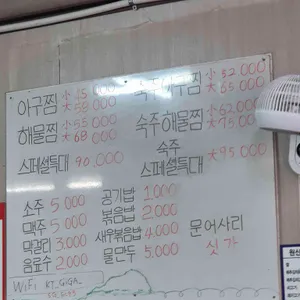 아구찜 小 45.000
大 58.000
숙주아구찜 小 52.000
大 65.000
해물찜 小 55.000
大 68.000
숙주해물찜 小 62.000
大 75.000
스페셜특대 90.000
숙주
스페셜특대 大 95.000
소주 5.000
맥주 5.000
막걸리 3.000
음료수 2.000
공기밥 1.000
볶음밥 2.000
새우볶음밥 4.000
물만두 5.000
문어사리
싯가
WiFi KT_GiGA_